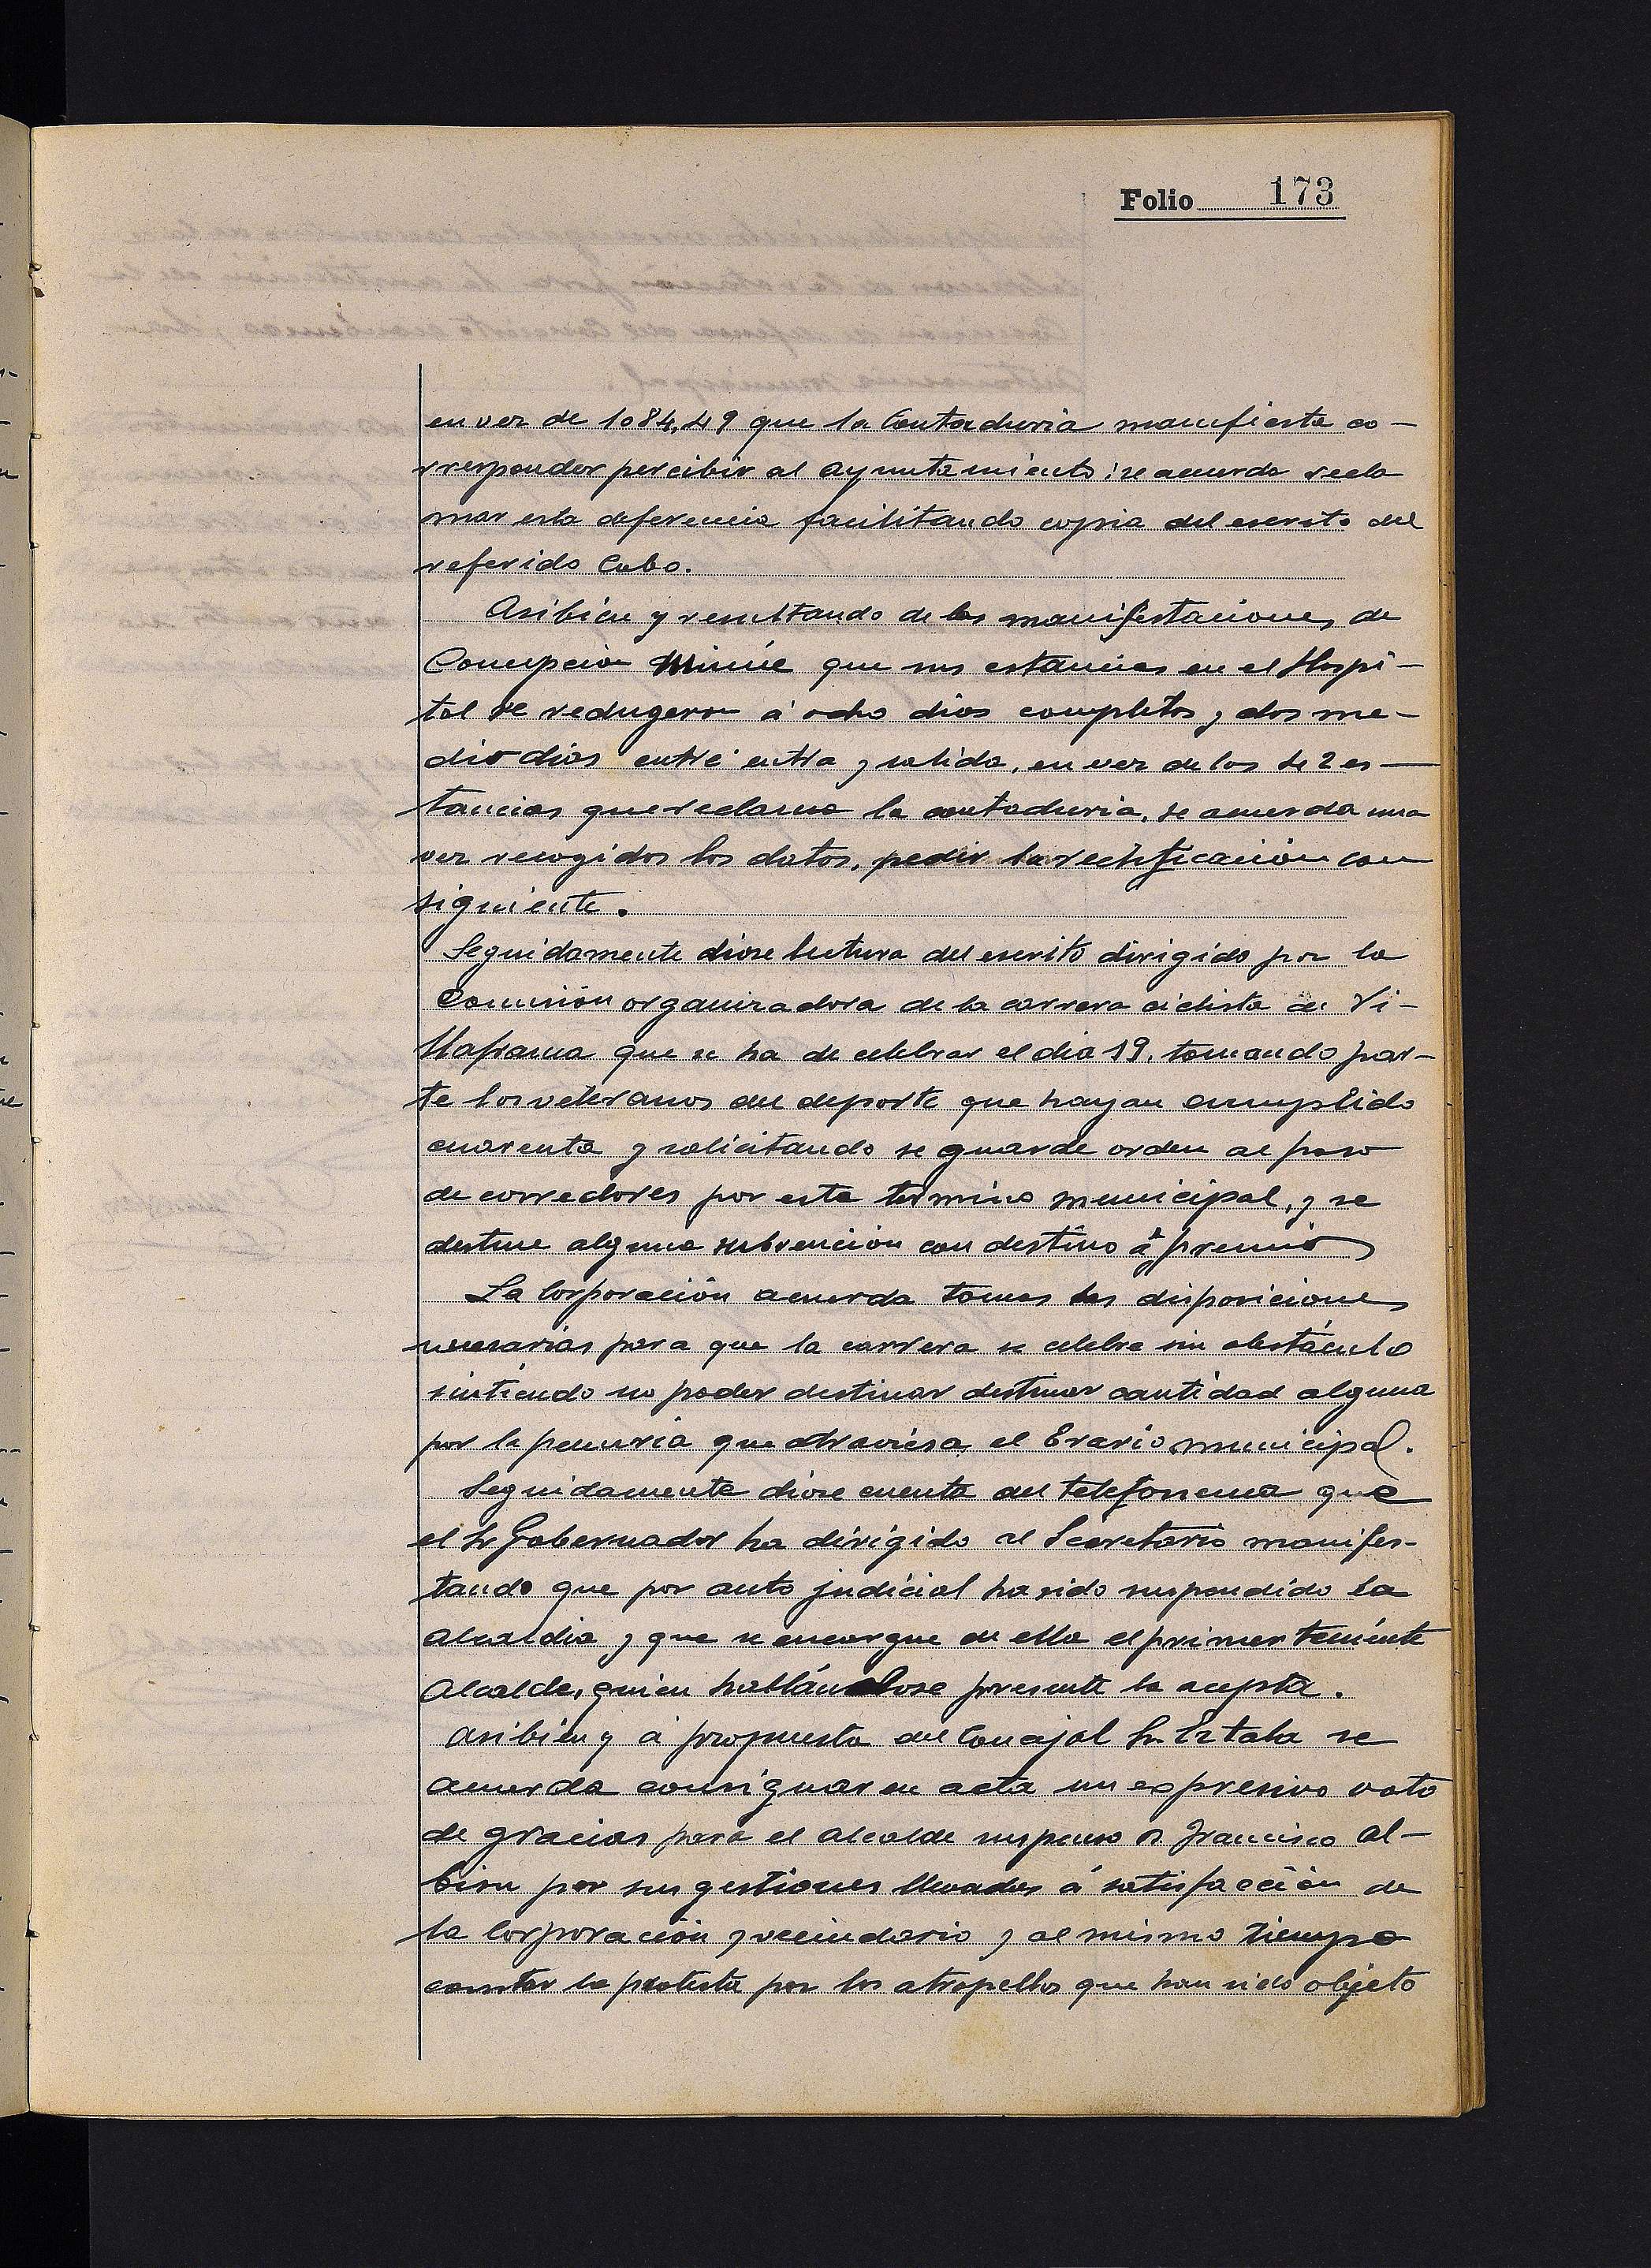 Folio 173
en vez de 1084,49 que la Contaduria manifiesta co-
rresponder percibir al Ayuntamiento: se acuerda recla
mar esta deferencia facilitando copia del escrito del
referido Cabo.
Asibien y resultando de las manifestaciones de
Concepción que sus estancias en el Hospi-
tal se redugeron á ocho dias completos y dos me-
dio dias entre entra y salida, en vez de los 22 es-
tancias que reclama la contaduria, se acuerda una
vez recogidos los datos, pedir la rectificación con
siguiente.
Seguidamente diose lectura del escrito dirigido por la
Comisión organizadora de la carrera ciclista de Vi-
llafranca que se ha de celebrar el dia 19, tomando par-
te los veteranos del deporte que hayan cumplido
cuarenta y solicitando se guarde orden al paso
de corredores por este termino municipal, y se
destine alguna subvención con destino á premios
La Corporación acuerda tomar las disposiciones
necesarias para que la carrera se celebre sin obstáculo
sintiendo no poder destinar destinar cantidad alguna
por la penuria que atraviesa el Erario municipal.
Seguidamente diose cuenta del telefonema que
el Sr Gobernador ha dirigido al Secretario manifes-
tando que por auto judicial ha sido suspendido la
alcaldia y que se encargue de ella el primer teniente
Alcalde, quien hallándose presente la acepta.
Asibien y á propuesta del Concejal Sr se
acuerda consignar en acta un expresivo voto
de gracias para el alcalde suspenso Dn Francisco Al-
bisu por sus gestiones llevadas á satisfacción de
la Corporación y vecindario y al mismo tiempo
constar la protesta por los atropellos que han sido objeto